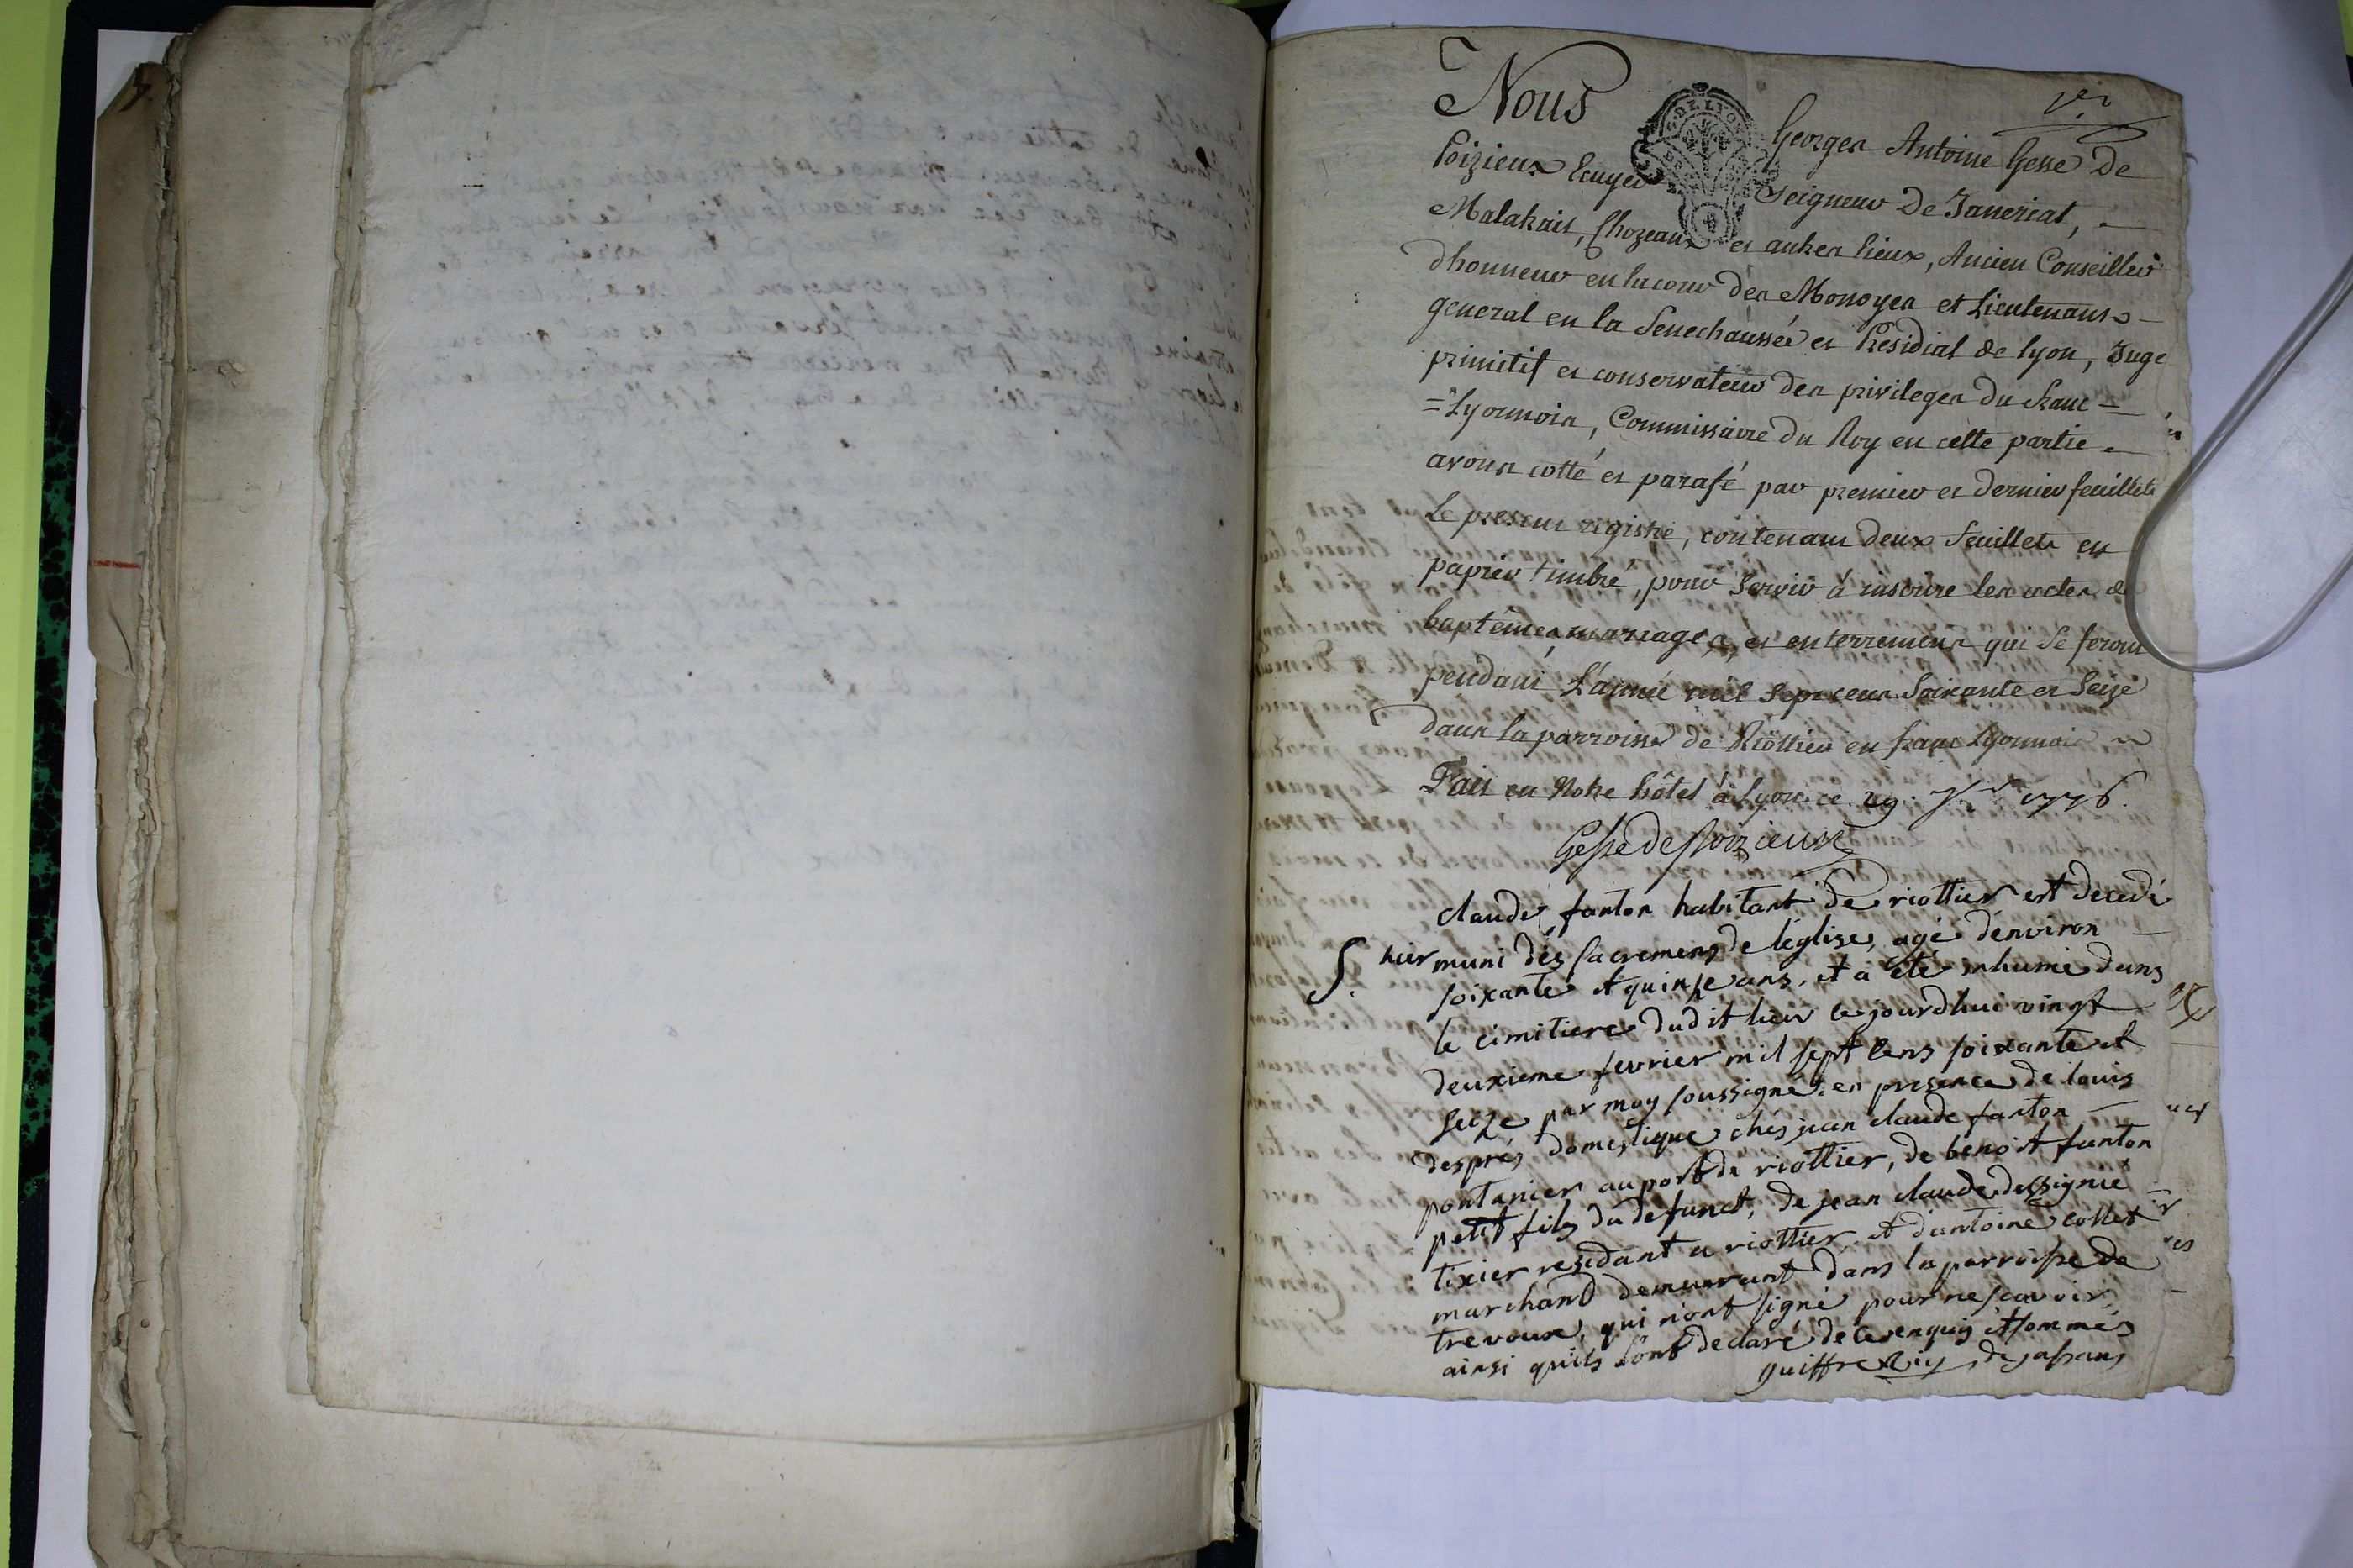 1er
Nous Georges Antoine Gesse de
Poizieux Ecuyer Seigneur de Janeriat,
Malatrait, Chozeaux et autres lieux, Ancien Conseiller
d'honneur en la cour des Monoyes et Lieutenant
general en la Senechaussée et Presidial de lyon, Juge
primitif et conservateur des privileges du franc=
=Lyonnois, Commissaire du Roy en cette partie
avons cotté et parafé par premier et dernier feuillets
Le present registre, contenant deux feuillets en
papier timbré, pour Servir à inscrire les actes de
baptêmes, mariages, et enterremens qui Se feront
pendant L'année mil Sept cens Soixante et Seize
dans la parroisse de Riottier en franc Lyonnois
Fait en Notre hôtel à Lyon ce 29 1776.
Gesse de Poizieux
claude fanton habitant de riottier est decedé
S. hier muni des sacremens de l'eglise, agé d'environ
soixante et quinze ans, et a été inhumé dans
le cimitiere dudit lieu cejourdhui vingt
deuxieme fevrier mil sept cens soixante et
seize, par moy soussigné en presence de louis
després domestique chés jean claude fanton
pontanier au port de riottier, de benoit fanton
petit fils du defunct, de jean claude dessignie
tixier residant a riottier et d'antoine collet
marchand demeurant dans la parroisse de
trevoux, qui n'ont signé pour ne scavoir,
ainsi qu'ils l'ont declaré de ce enquis et sommés
de jassans